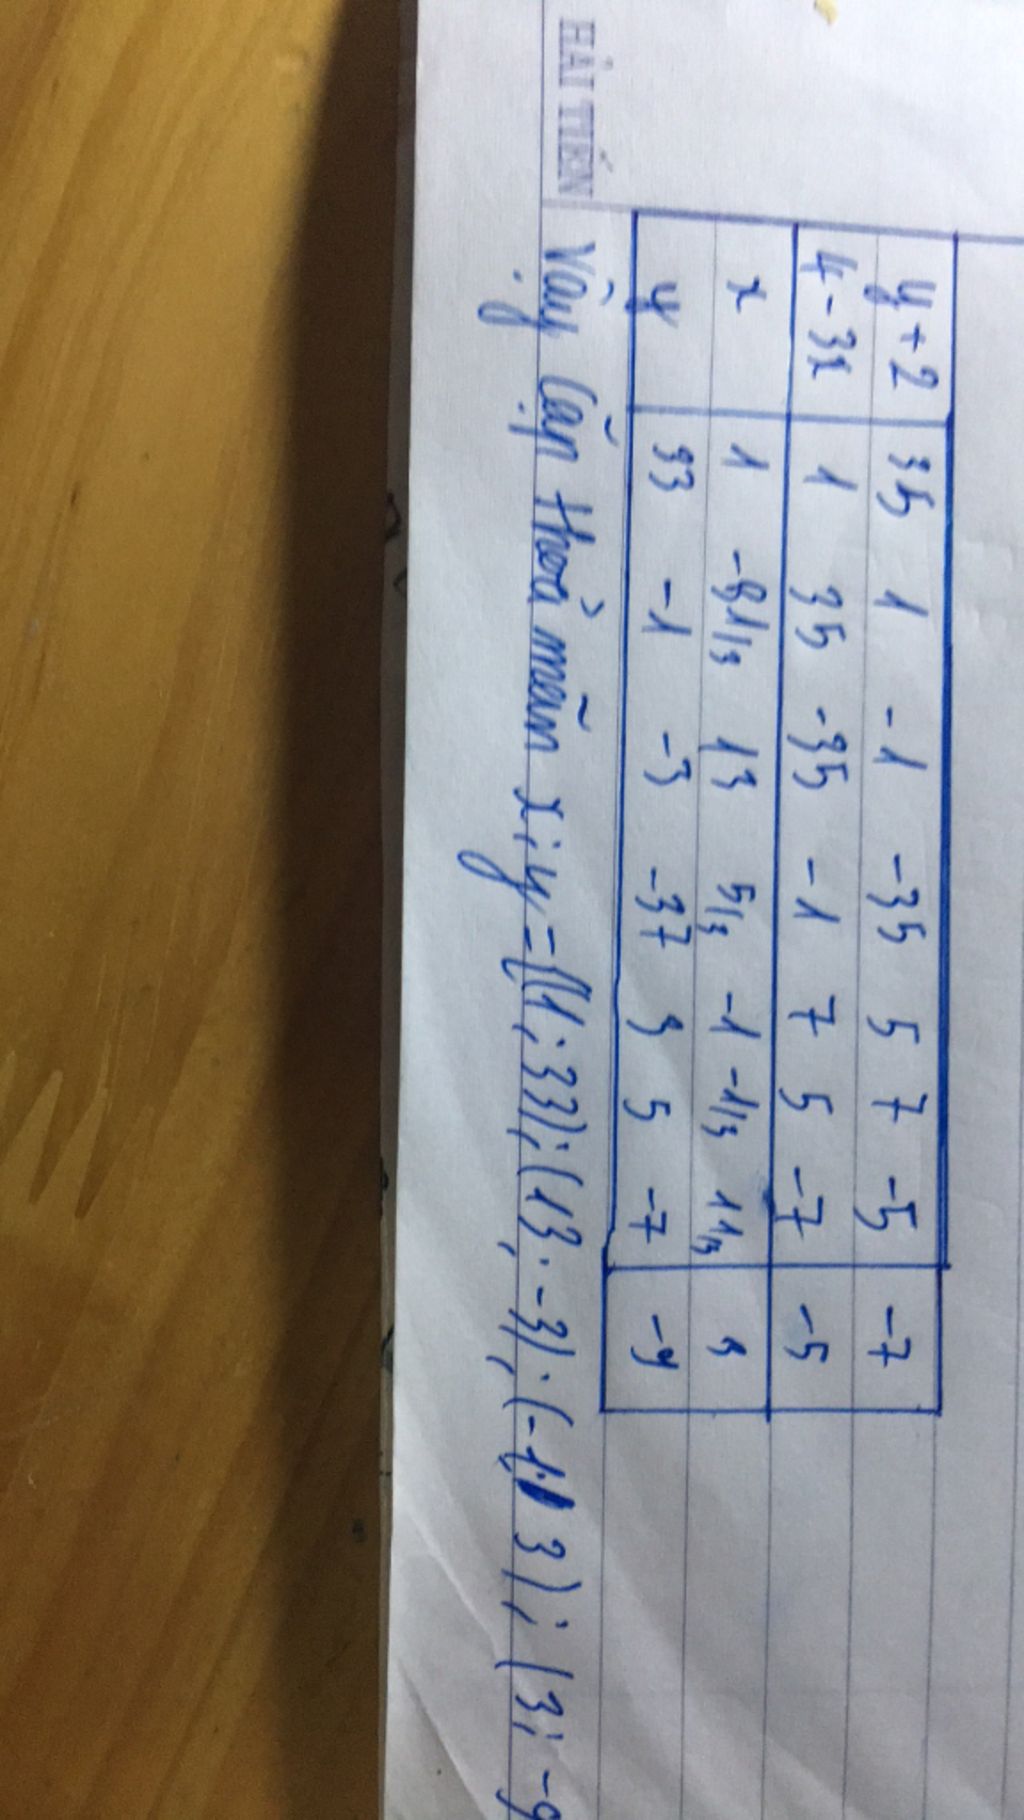 HẢI TIẾN
y + 2 35 1 -1 -35 5 7 -5 -7
4 - 3x 1 35 -35 -1 7 5 -7 -5
x 1 -31/3 13 5/3 -1 -1/3 11/3 3
y 33 -1 -3 -37 3 5 -7 -9
Vậy cặp thoả mãn x; y = {(1; 33); (13; -3); (-1; 3); (3; -9